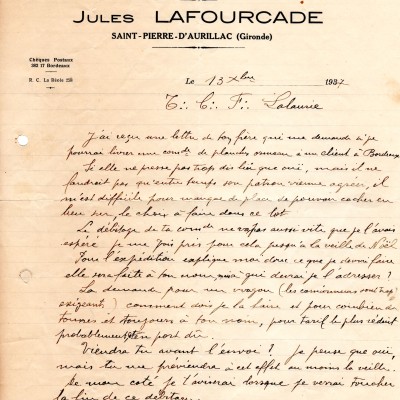 JULES LAFOURCADE
SAINT-PIERRE-D'AURILLAC (Gironde)
Chèques Postaux
382 17 Bordeaux
R. C. La Réole 259
Le 13 Xbre 1937
T∴ C∴ F∴ Lalaurie
J'ai reçu une lettre de ton frère qui me demande si je
pourrai livrer une comde de planches ormeau à un client à Bordeaux
Si elle ne presse pas trop dis lui que oui, mais il ne
faudrait pas qu'entre temps son patron vienne agréer, il
m'est difficile pour manque de place de pouvoir cocher en
lieu sur le choix à faire dans ce lot
Le débitage de ta comde ne va pas aussi vite que je l'avais
espéré je me vois pris pour cela jusqu'à la veille de Noël.
Pour l'expédition explique moi donc ce que je devrai faire
elle sera faite à ton nom, mais à qui devrai je l'adresser?
La demande pour un wagon (les cheminots sont trop
exigeants) comment dois je la faire et pour combien de
tonnes et toujours à ton nom, pour tarif le plus réduit
probablement et en port dû.
Viendra tu avant l'envoi? je pense que oui,
mais tu me préviendra à cet effet au moins la veille.
De mon coté je t'aviserai lorsque je verrai toucher
la fin de ce débitage.